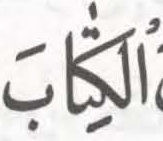 الكِتٰابَ